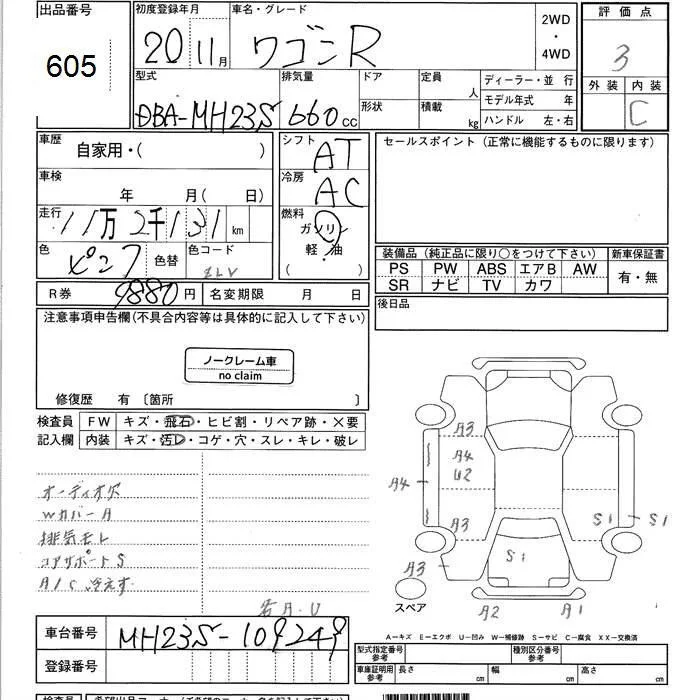 出品番号
605
初度登録年月
20 11月
車名・グレード
ワゴンR
2WD
・
4WD
評価点
3
外装 内装
C
型式
DBA-MH23S
排気量
660cc
ドア
形状
定員 人
積載 kg
ディーラー・並行
モデル年式 年
ハンドル 左・右
車歴
自家用・( )
車検
年 月( 日)
走行
11万2千131km
色
ピンク
色替
色コード
ZLV
シフト
AT
冷房
AC
燃料
ガソリン
軽・油
( )
セールスポイント (正常に機能するものに限ります)
装備品 (純正品に限り○をつけて下さい)
PS PW ABS エアB AW
SR ナビ TV カワ
新車保証書
有・無
R券 9880円
名変期限 月 日
後日品
注意事項申告欄(不具合内容等は具体的に記入して下さい)
ノークレーム車
no claim
修復歴 有 〔箇所 〕
検査員
記入欄
FW キズ・飛石・ヒビ割・リペア跡・×要
内装 キズ・汚レ・コゲ・穴・スレ・キレ・破レ
オーディオ欠
WカバーA
排気モレ
コアサポートS
A/C冷えず
右A.U
A3
A4
A4
U2
A3
A3
S1
S1
S1
A2
A1
スペア
A-キズ E-エクボ U-凹み W-補修跡 S-サビ C-腐食 XX-交換済
車台番号 MH23S-109249
登録番号
型式指定番号
参考
種別区分番号
参考
車庫証明用
参考
長さ cm
幅 cm
高さ cm